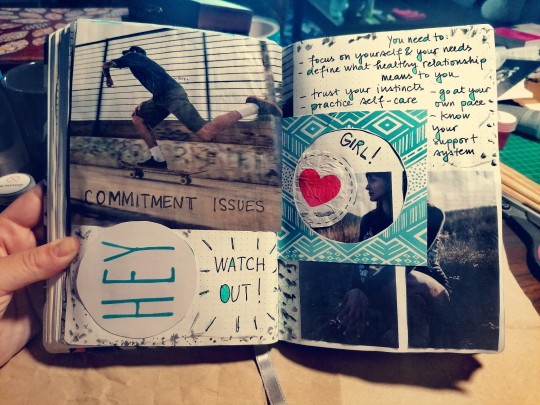 COMMITMENT ISSUES
HEY
WATCH
OUT!
You need to:
- focus on yourself & your needs
- define what healthy relationship
means to you
- trust your instincts
- practice self-care
- go at your
own pace
- know
your
support
system
GIRL!